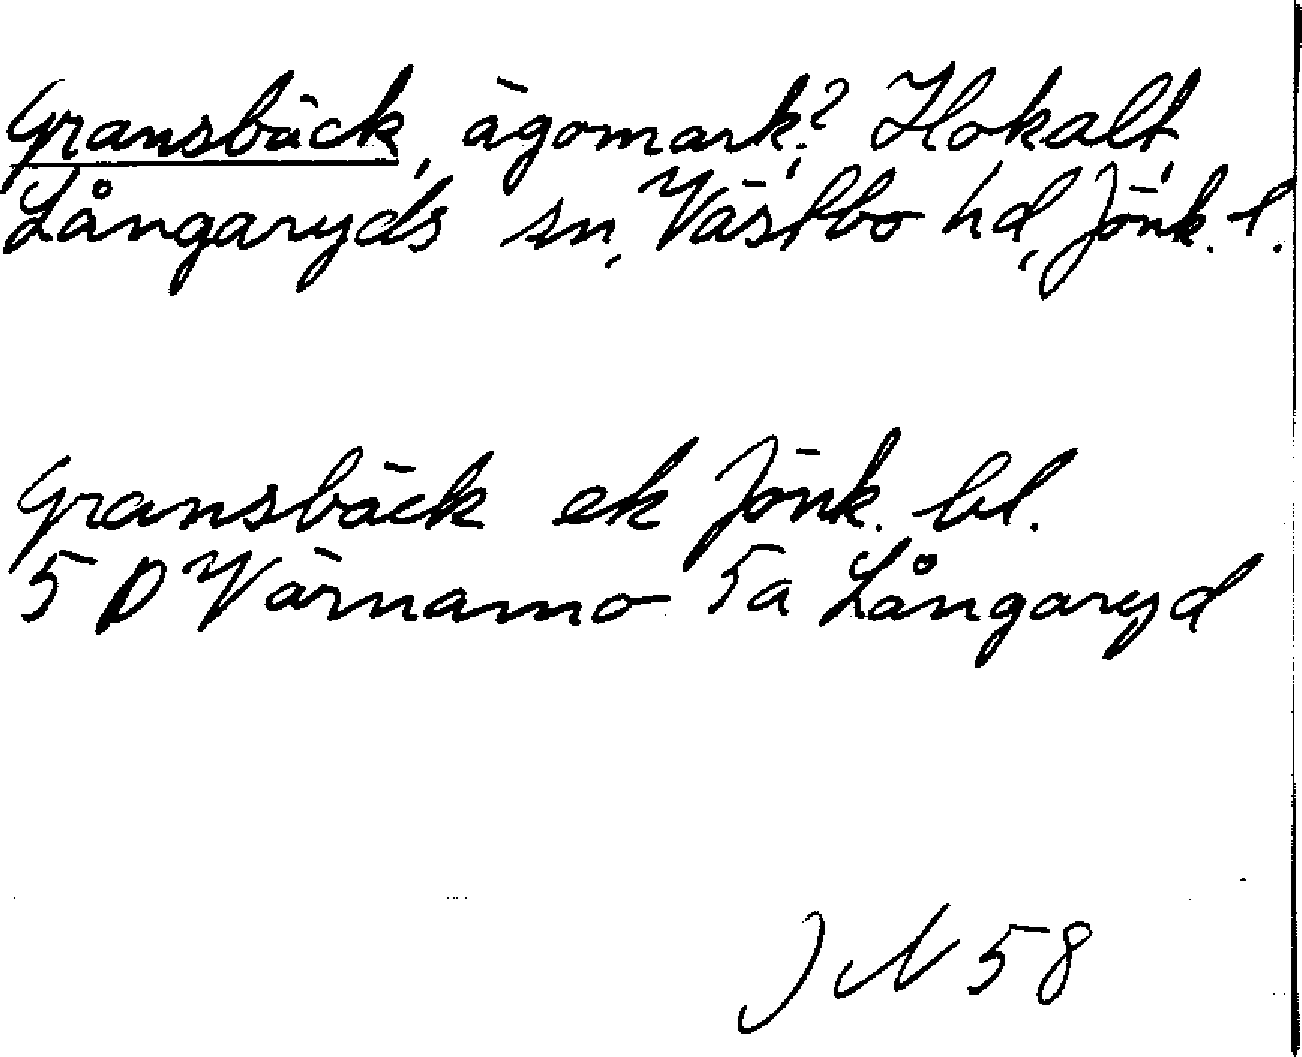 Gransbäck, ägomark?, Hokalt,
Långaryds sn, Västbo hd, Jönk. l.
Gransbäck ek Jönk. bl.
5 D Värnamo 5a Långaryd
JN 58